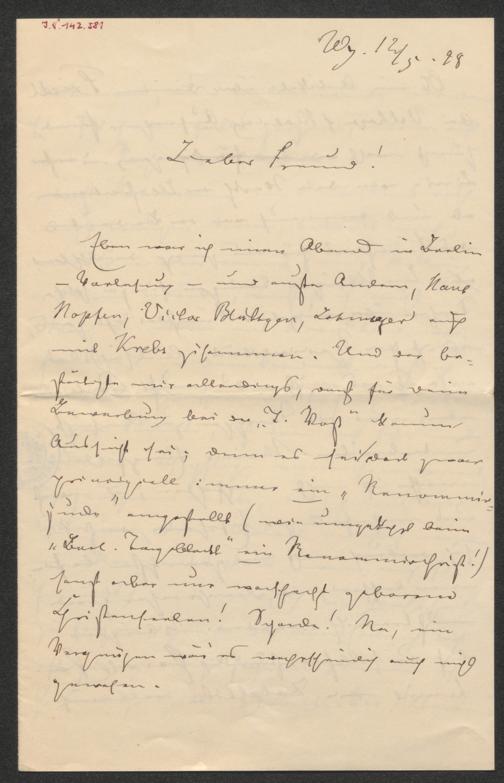 J.N. 142.381
Wg. 12/5. 98
Lieber Freund!
Eben war ich einen Abend in Berlin
– Vorlesung – und außer Andern, Hans
Hopfen, Victor Blüthgen, auch
mit Krebs zusammen. Und der be-
stätigte mir allerdings, daß für deine
Bewerbung bei der „T. Voß" kaum
Aussicht sei; denn es sei dort zwar
prinzipiell immer ein „Renommir-
jude" angestellt (wie umgekehrt beim
„Berl. Tageblatt" ein Renommirchrist!)
sonst aber nur waschecht geborene
Christenseelen! Schade! Na, ein
Vergnügen wär' es wahrscheinlich auch nicht
gewesen.